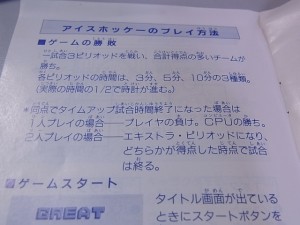 アイスホッケーのプレイ方法
■ゲームの勝敗
一試合3ピリオッドを戦い、合計得点の多いチームが
勝ち。
各ピリオッドの時間は、3分、5分、10分の3種類。
(実際の時間の1/2で時計が進む。)
*同点でタイムアップ試合時間終了になった場合は
1人プレイの場合——プレイヤの負け。CPUの勝ち。
2人プレイの場合——エキストラ・ピリオッドになり、
どちらかが得点した時点で試合
は終る。
■ゲームスタート
タイトル画面が出ている
ときにスタートボタンを
GREAT